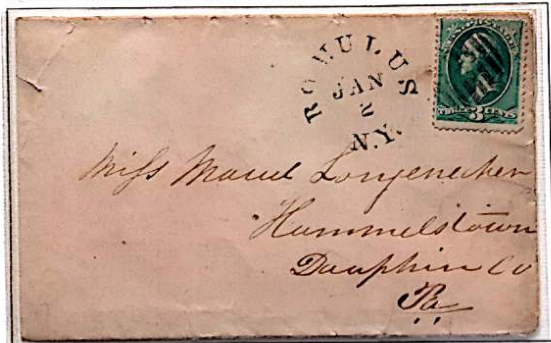 ROMULUS
JAN
2
N.Y.
U.S. POSTAGE
THREE 3 CENTS
Miss Maud Longenecker
Hummelstown
Dauphin Co
Pa